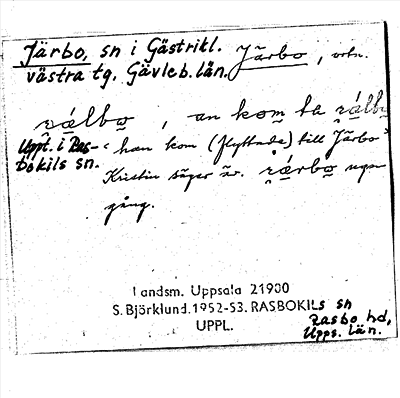 Järbo, sn i Gästrikl. Järbo, ortn.
västra tg, Gävleb. län.
rálbo, an kom ta rálbo
Uppt. i Ras- han kom (flyttade) till Järbo
bokils sn. Kristin säger äv. rárbo ngn
gång.
Landsm. Uppsala 21900
S. Björklund. 1952-53. RASBOKILS sn
UPPL. Rasbo hd,
Upps. län.